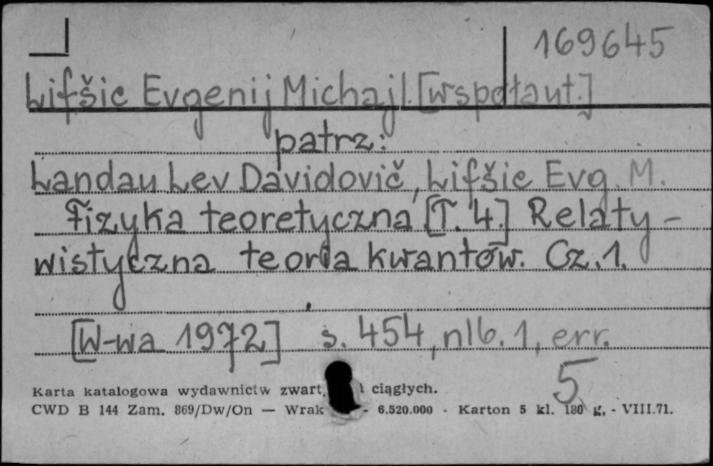 169645
Lifšic Evgenij Michajl. [współaut.]
patrz:
Landau Lev Davidovič, Lifšic Evg. M.
Fizyka teoretyczna [T. 4.] Relaty-
wistyczna teoria kwantów. Cz. 1.
[W-wa 1972] s. 454, nlb. 1, err.
5
Karta katalogowa wydawnictw zwart. ciągłych.
CWD B 144 Zam. 869/Dw/On — Wrak - 6.520.000 - Karton 5 kl. 180 g. - VIII.71.